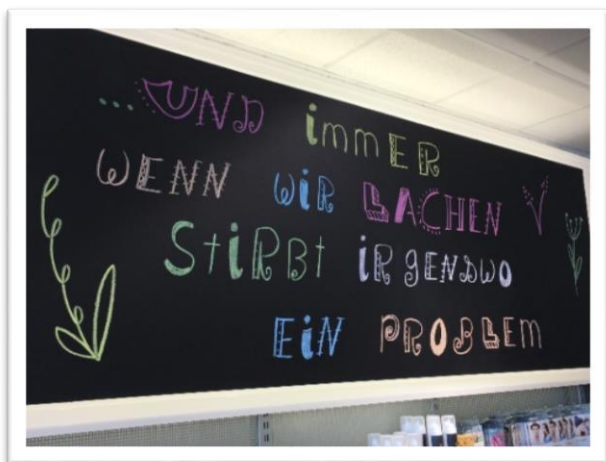 ...UND immER
WENN WiR LACHEN
StiRBt iRgENDWO
EiN PROBLEm